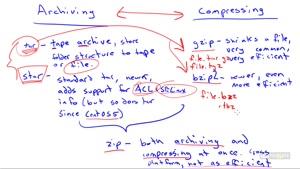 Archiving
Compressing
tar - tape archive, store
folder structure to tape
or file.
star - standard tar, newer,
adds support for ACL + SELinux
info (but so does tar
since CentOS5)
gzip - shrinks a file,
very common,
very efficient
file.tar.gz
file.tgz
bzip2 - newer, even
more efficient
file.bz2
.tbz
zip - both archiving and
compressing at once. Cross
platform, not as efficient